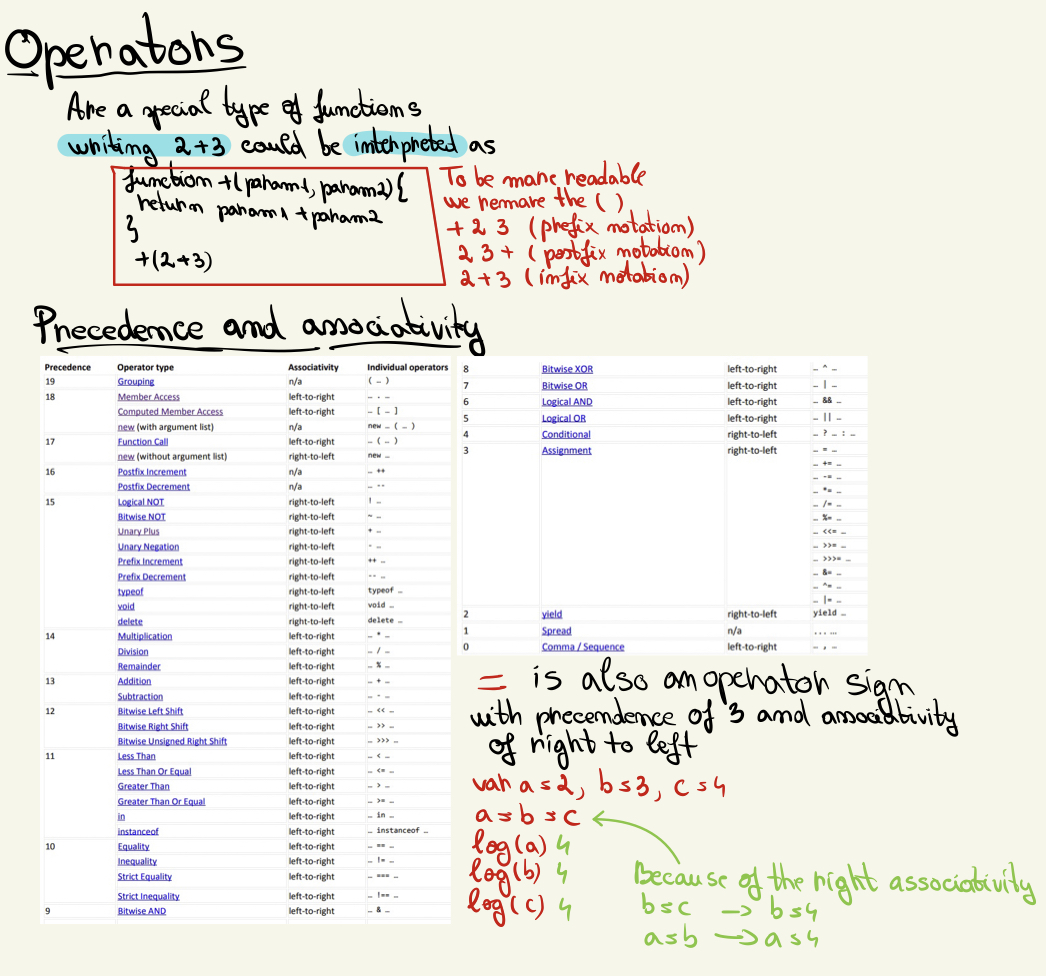 Operators
Are a special type of functions
writing 2+3 could be interpreted as
function +(param1, param2) {
return param1 + param2
}
+(2+3)
To be more readable
we remove the ( )
+ 2 3 (prefix notation)
2 3 + (postfix notation)
2 + 3 (infix notation)
Precedence and associativity
Precedence Operator type Associativity Individual operators
19 Grouping n/a ( … )
18 Member Access left-to-right … . …
Computed Member Access left-to-right … [ … ]
new (with argument list) n/a new … ( … )
17 Function Call left-to-right … ( … )
new (without argument list) right-to-left new …
16 Postfix Increment n/a … ++
Postfix Decrement n/a … --
15 Logical NOT right-to-left ! …
Bitwise NOT right-to-left ~ …
Unary Plus right-to-left + …
Unary Negation right-to-left - …
Prefix Increment right-to-left ++ …
Prefix Decrement right-to-left -- …
typeof right-to-left typeof …
void right-to-left void …
delete right-to-left delete …
14 Multiplication left-to-right … * …
Division left-to-right … / …
Remainder left-to-right … % …
13 Addition left-to-right … + …
Subtraction left-to-right … - …
12 Bitwise Left Shift left-to-right … << …
Bitwise Right Shift left-to-right … >> …
Bitwise Unsigned Right Shift left-to-right … >>> …
11 Less Than left-to-right … < …
Less Than Or Equal left-to-right … <= …
Greater Than left-to-right … > …
Greater Than Or Equal left-to-right … >= …
in left-to-right … in …
instanceof left-to-right … instanceof …
10 Equality left-to-right … == …
Inequality left-to-right … != …
Strict Equality left-to-right … === …
Strict Inequality left-to-right … !== …
9 Bitwise AND left-to-right … & …
8 Bitwise XOR left-to-right … ^ …
7 Bitwise OR left-to-right … | …
6 Logical AND left-to-right … && …
5 Logical OR left-to-right … || …
4 Conditional right-to-left … ? … : …
3 Assignment right-to-left … = …
… += …
… -= …
… *= …
… /= …
… %= …
… <<= …
… >>= …
… >>>= …
… &= …
… ^= …
… |= …
2 yield right-to-left yield …
1 Spread n/a ... …
0 Comma / Sequence left-to-right … , …
= is also an operator sign
with precendence of 3 and associativity
of right to left
var a = 2, b = 3, c = 4
a = b = c
log(a) 4
log(b) 4
log(c) 4
Because of the right associativity
b = c -> b = 4
a = b -> a = 4